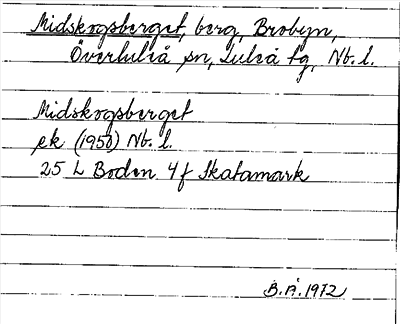 Midskogsberget, berg, Brobyn,
Överluleå sn, Luleå tg, Nb. l.
Midskogsberget
ek (1950) Nb. l.
25 L Boden 4f Skatamark
B.Å. 1972